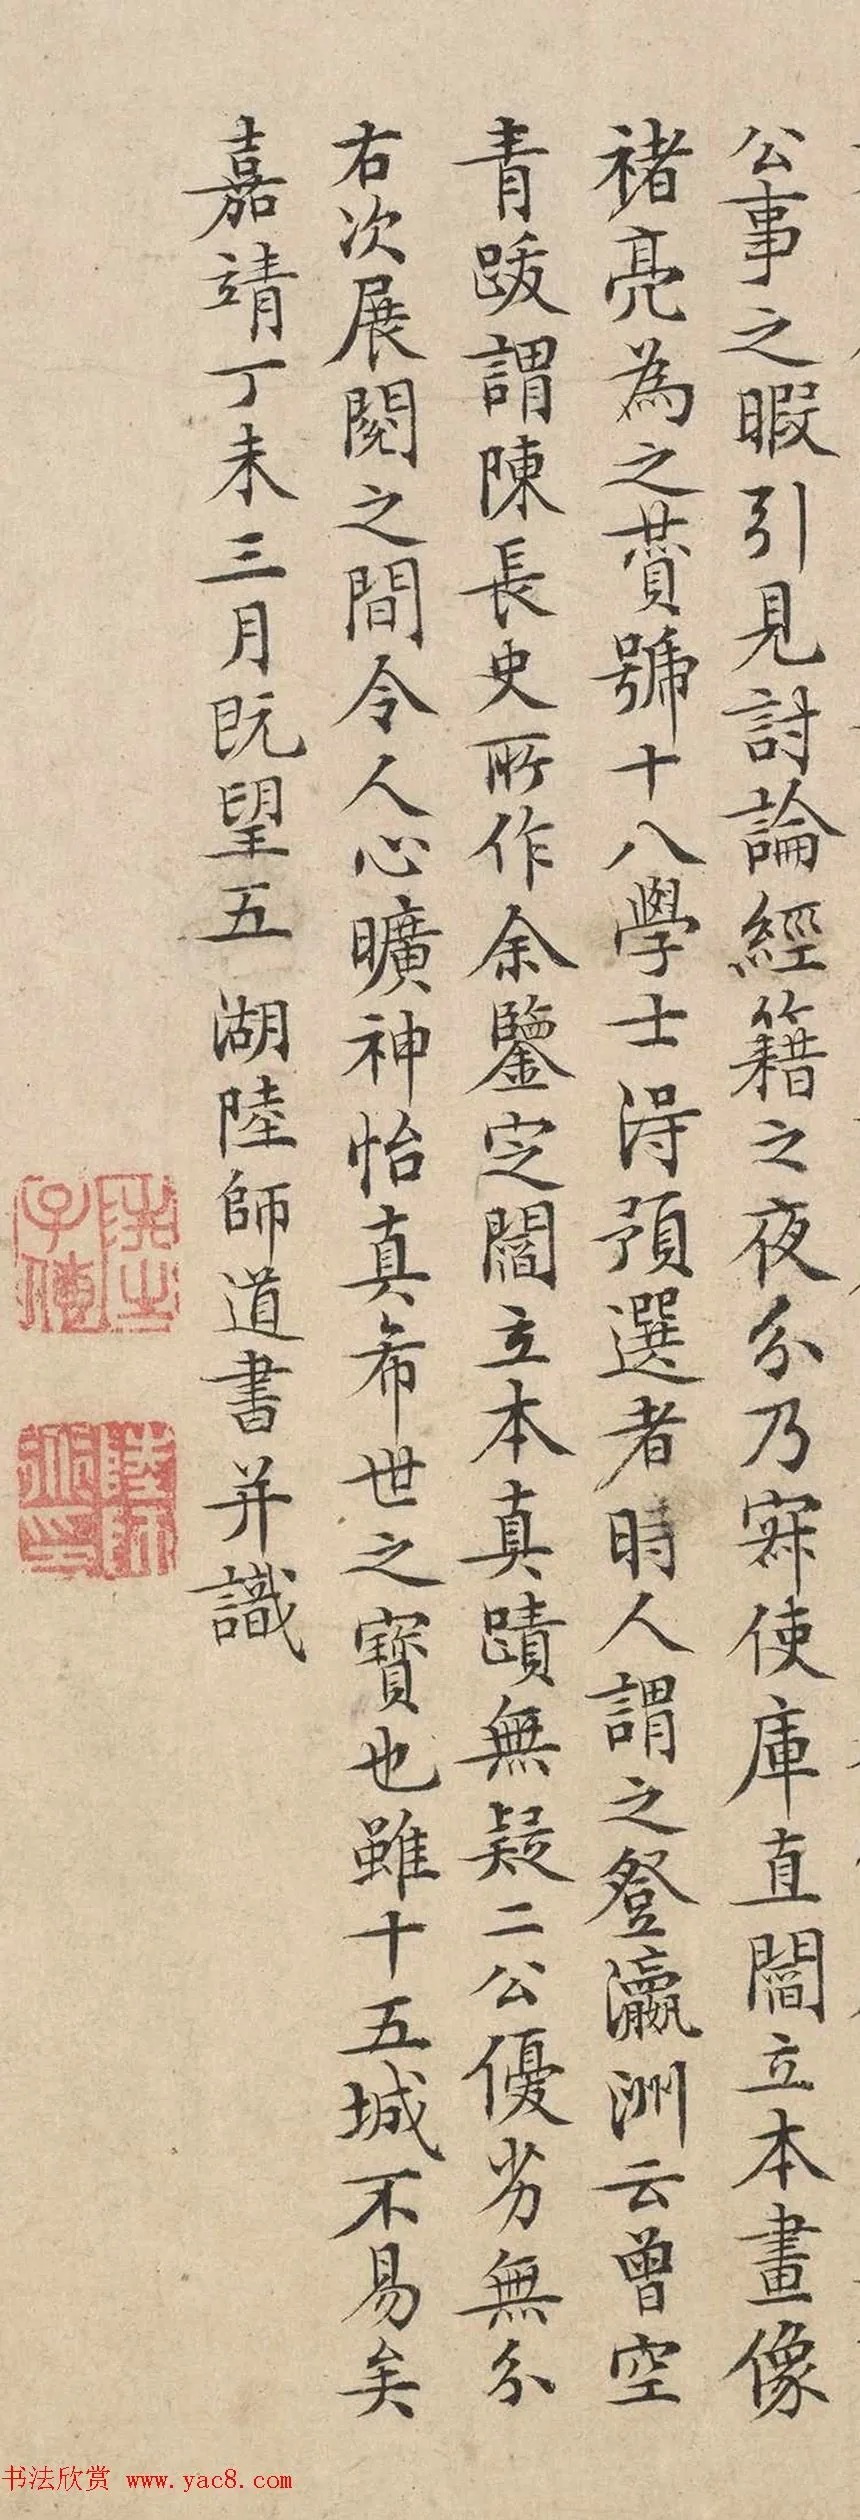 公事之暇引見討論經籍之夜分乃寐使庫直閻立本畫像
褚亮為之賛號十八學士得預選者時人謂之登瀛洲云曾空
青跋謂陳長史所作余鑒定閻立本真蹟無疑二公優劣無分
右次展閱之間令人心曠神怡真希世之寶也雖十五城不易矣
嘉靖丁未三月既望五湖陸師道書并識
陸氏子傳
陸師道印
书法欣赏 www.yac8.com